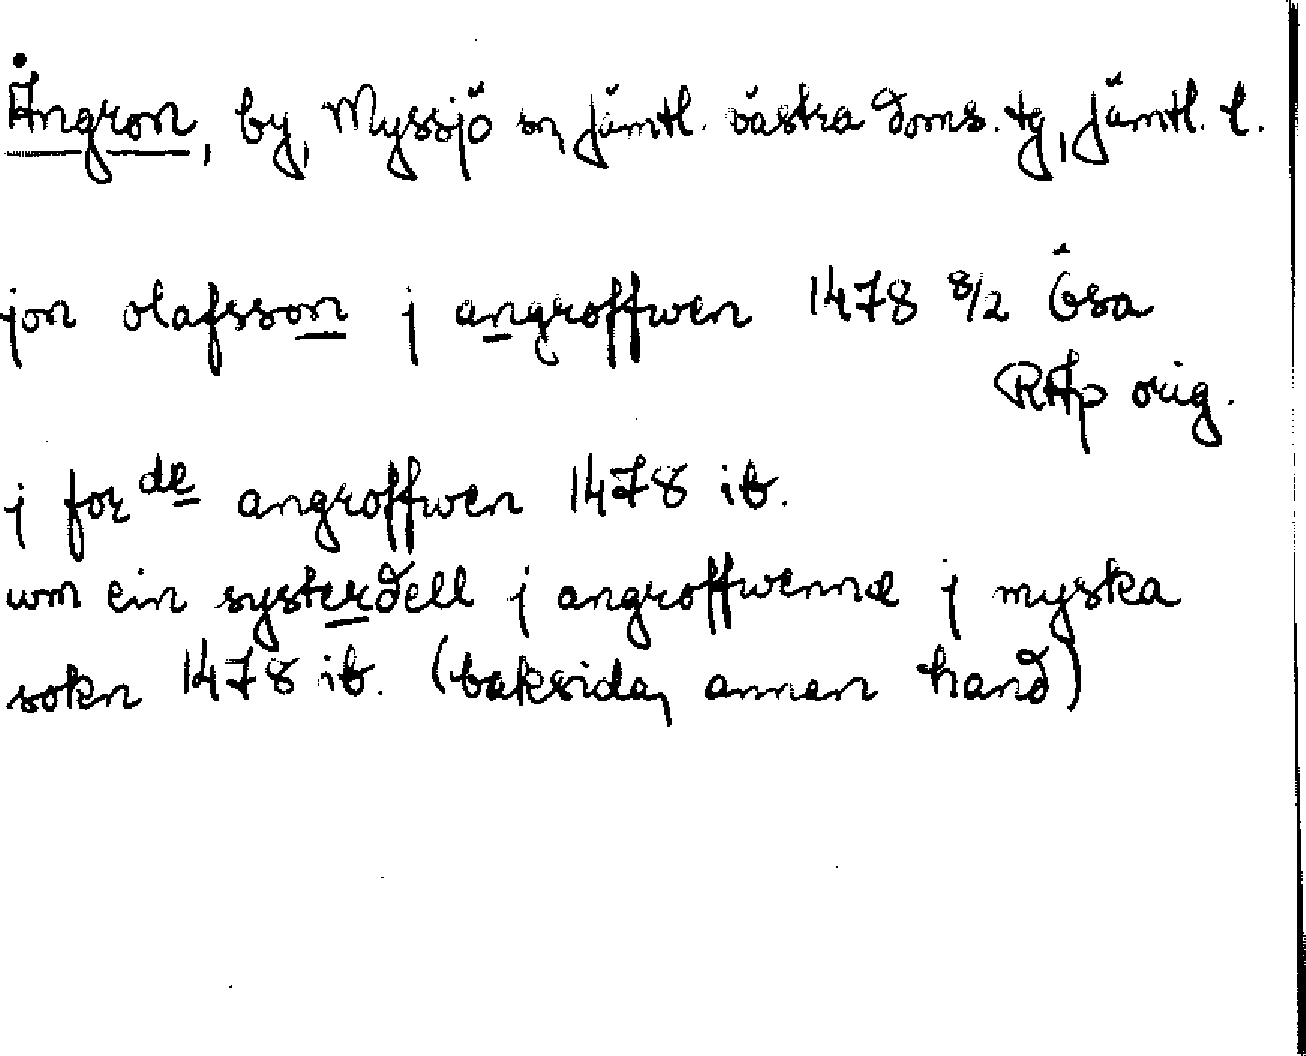 Ångron, by, Myssjö sn, Jämtl. västra doms. tg, Jämtl. l.
jon olafsson j angroffwen 1478 8/2 Ösa
RAp orig.
j for de angroffwen 1478 ib.
wm ein systerdell j angroffwenne j myska
sokn 1478 ib. (baksida, annan hand)